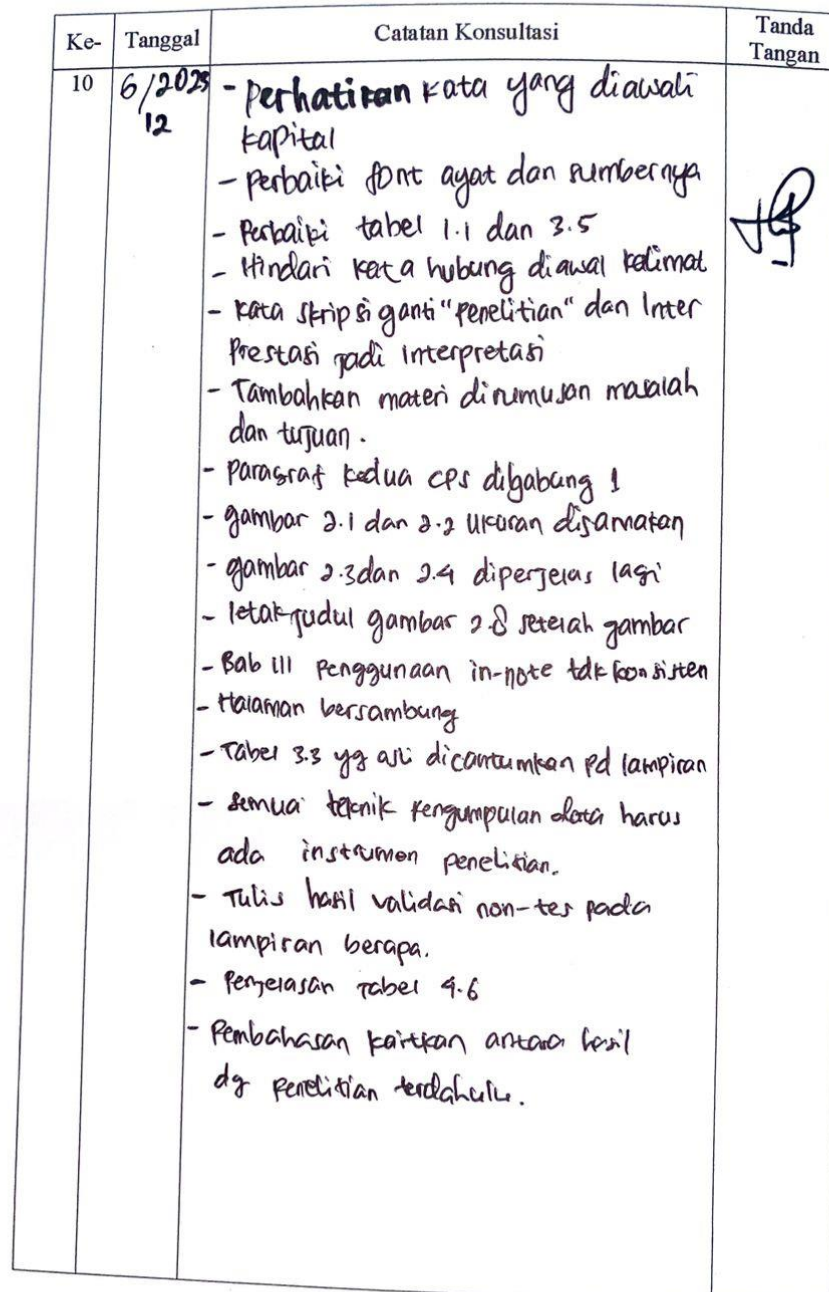 Ke- Tanggal Catatan Konsultasi Tanda Tangan
10 6/12 2025 - Perhatikan kata yang diawali
kapital
- Perbaiki font ayat dan sumbernya
- Perbaiki tabel 1.1 dan 3.5
- Hindari kata hubung diawal kalimat
- Kata skripsi ganti "penelitian" dan Inter
Prestasi jadi interpretasi
- Tambahkan materi dirumusan masalah
dan tujuan.
- Paragraf kedua CPS digabung 1
- gambar 2.1 dan 2.2 ukuran disamakan
- gambar 2.3 dan 2.4 diperjelas lagi
- letak judul gambar 2.8 setelah gambar
- Bab III Penggunaan in-note tdk konsisten
- Halaman bersambung
- Tabel 3.3 yg asli dicantumkan pd lampiran
- semua teknik pengumpulan data harus
ada instrumen penelitian.
- Tulis hasil validasi non-tes pada
lampiran berapa.
- Penjelasan Tabel 4.6
- Pembahasan kaitkan antara hasil
dg penelitian terdahulu.